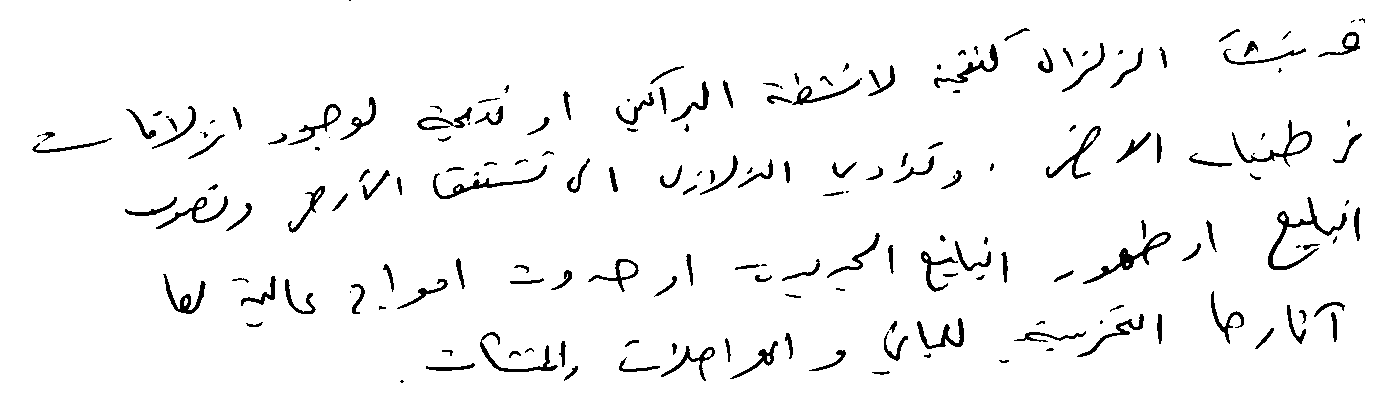 قد ينشأ الزلزال كنتيجة لانشطة البراكين او نتيجة لوجود انزلاقات
في طبقات الارض . وتؤدي الزلازل الى تشقق الأرض ونضوب
الينابيع او ظهور الينابيع الجديدة او حدوث امواج عالية لها
آثارها التخريبية للمباني و المواصلات والمنشآت .